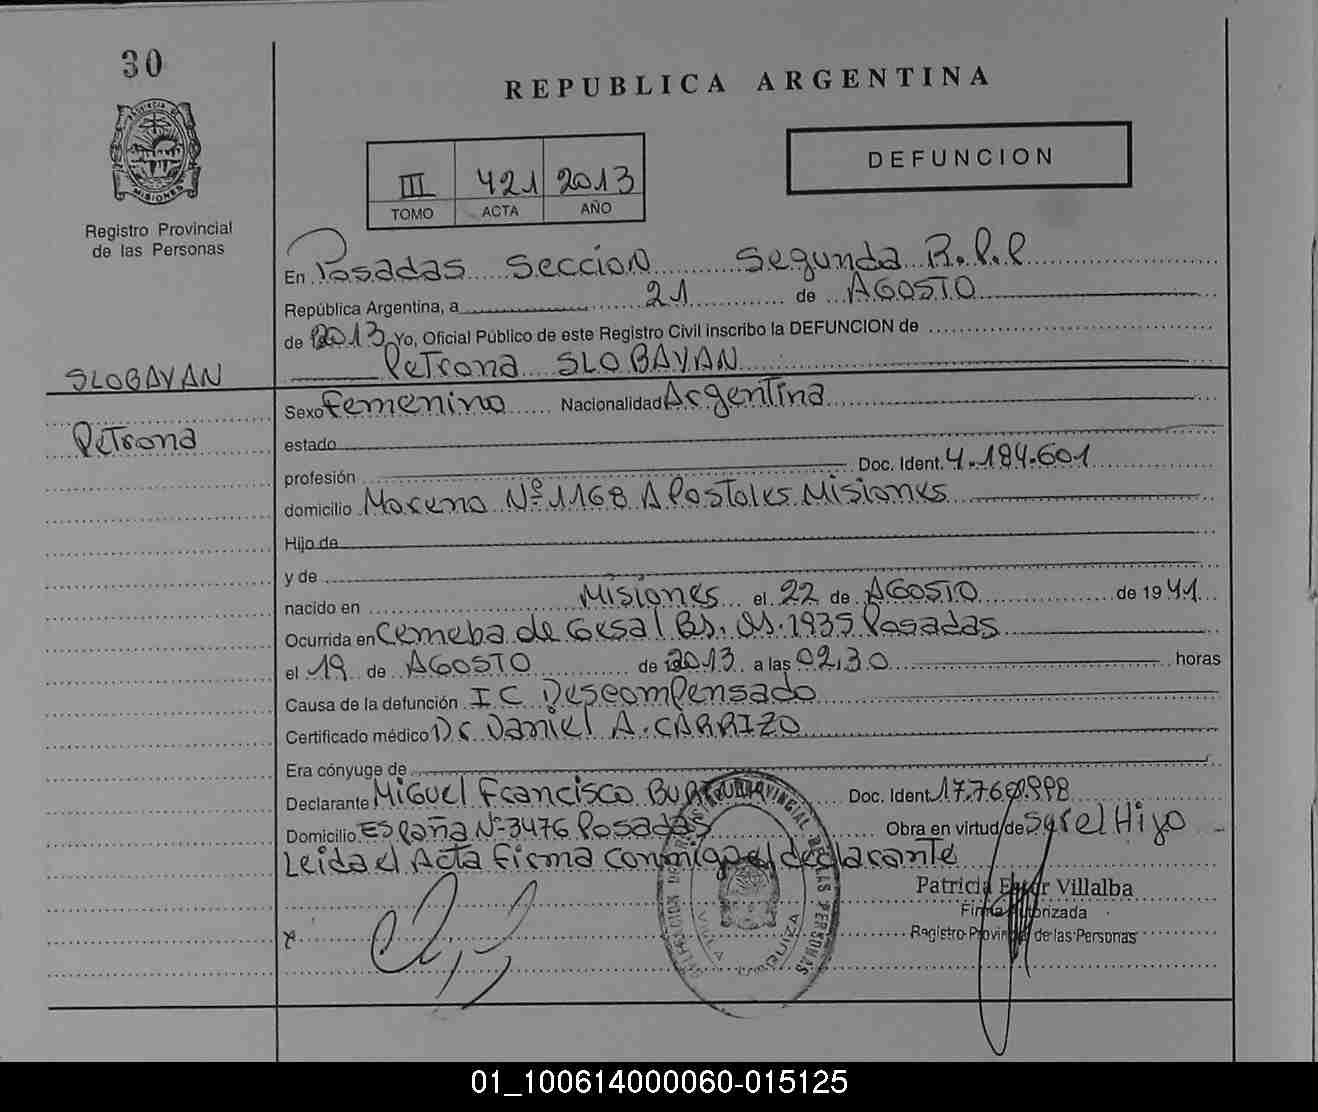 30
REPUBLICA ARGENTINA
DEFUNCION
III 421 2013
TOMO ACTA AÑO
PROVINCIA DE
MISIONES
Registro Provincial
de las Personas
En Posadas Seccion Segunda R.P.P
República Argentina, a 21 de AGOSTO
de 2013 Yo, Oficial Público de este Registro Civil inscribo la DEFUNCION de
Petrona SLOBAYAN
SLOBAYAN
Petrona
Sexo Femenino Nacionalidad Argentina
estado
profesión Doc. Ident. 4.184.601
domicilio Moreno Nº 1168 Apostoles Misiones
Hijo de
y de
nacido en Misiones el 22 de AGOSTO de 1941
Ocurrida en Cemeba de Gesal Bs. As. 1935 Posadas
el 19 de AGOSTO de 2013 a las 02,30 horas
Causa de la defunción I C Descompensado
Certificado médico Dr. Daniel A. CARRIZO
Era cónyuge de
Declarante Miguel Francisco Doc. Ident.
Domicilio España Nº 3476 Posadas Obra en virtud de Ser el Hijo
Leida el Acta Firma conmigo el declarante
Patricia Villalba
Firma Autorizada
Registro Provincial de las Personas
x
01_100614000060-015125